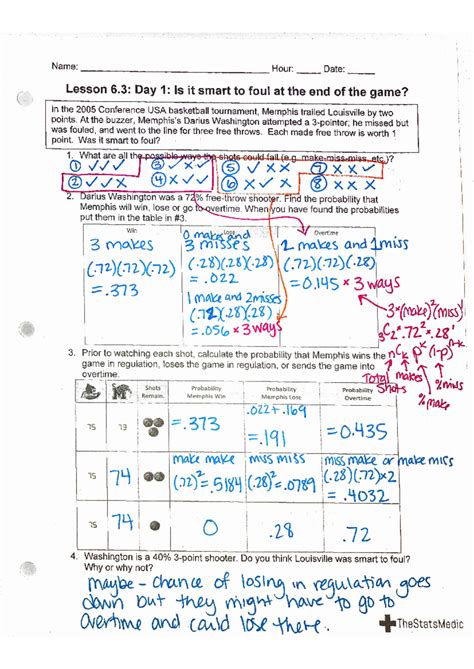 Name: Hour: Date:
Lesson 6.3: Day 1: Is it smart to foul at the end of the game?
In the 2005 Conference USA basketball tournament, Memphis trailed Louisville by two
points. At the buzzer, Memphis's Darius Washington attempted a 3-pointer; he missed but
was fouled, and went to the line for three free throws. Each made free throw is worth 1
point. Was it smart to foul?
1. What are all the possible ways the shots could fall (e.g. make-miss-miss, etc.)?
① ✓✓✓ ③ ✓X✓ ⑤ ✓XX ⑦ XX✓
② ✓✓X ④ X✓✓ ⑥ X✓X ⑧ XXX
2. Darius Washington was a 72% free-throw shooter. Find the probability that
Memphis will win, lose or go to overtime. When you have found the probabilities
put them in the table in #3.
Win Lose Overtime
3 makes
(.72)(.72)(.72)
=.373
0 makes and
3 misses
(.28)(.28)(.28)
= .022
1 make and 2 misses
(.72)(.28)(.28)
=.056 × 3 ways
2 makes and 1 miss
(.72)(.72)(.28)
=0.145 × 3 ways
3*(make)²(miss)
₃C₂*.72²*.28¹
nCk pᵏ(1-p)ⁿ⁻ᵏ
Total makes % miss
Shots % make
3. Prior to watching each shot, calculate the probability that Memphis wins the
game in regulation, loses the game in regulation, or sends the game into
overtime.
Shots Remain. Probability Memphis Win Probability Memphis Lose Probability Overtime
75 73 =.373 .022+.169 =.191 =0.435
75 74 make make (.72)²=.5184 miss miss (.28)²=.0784 miss make or make miss (.28)(.72)×2 =.4032
75 74 0 .28 .72
4. Washington is a 40% 3-point shooter. Do you think Louisville was smart to foul?
Why or why not?
maybe - chance of losing in regulation goes
down but they might have to go to
overtime and could lose there.
TheStatsMedic